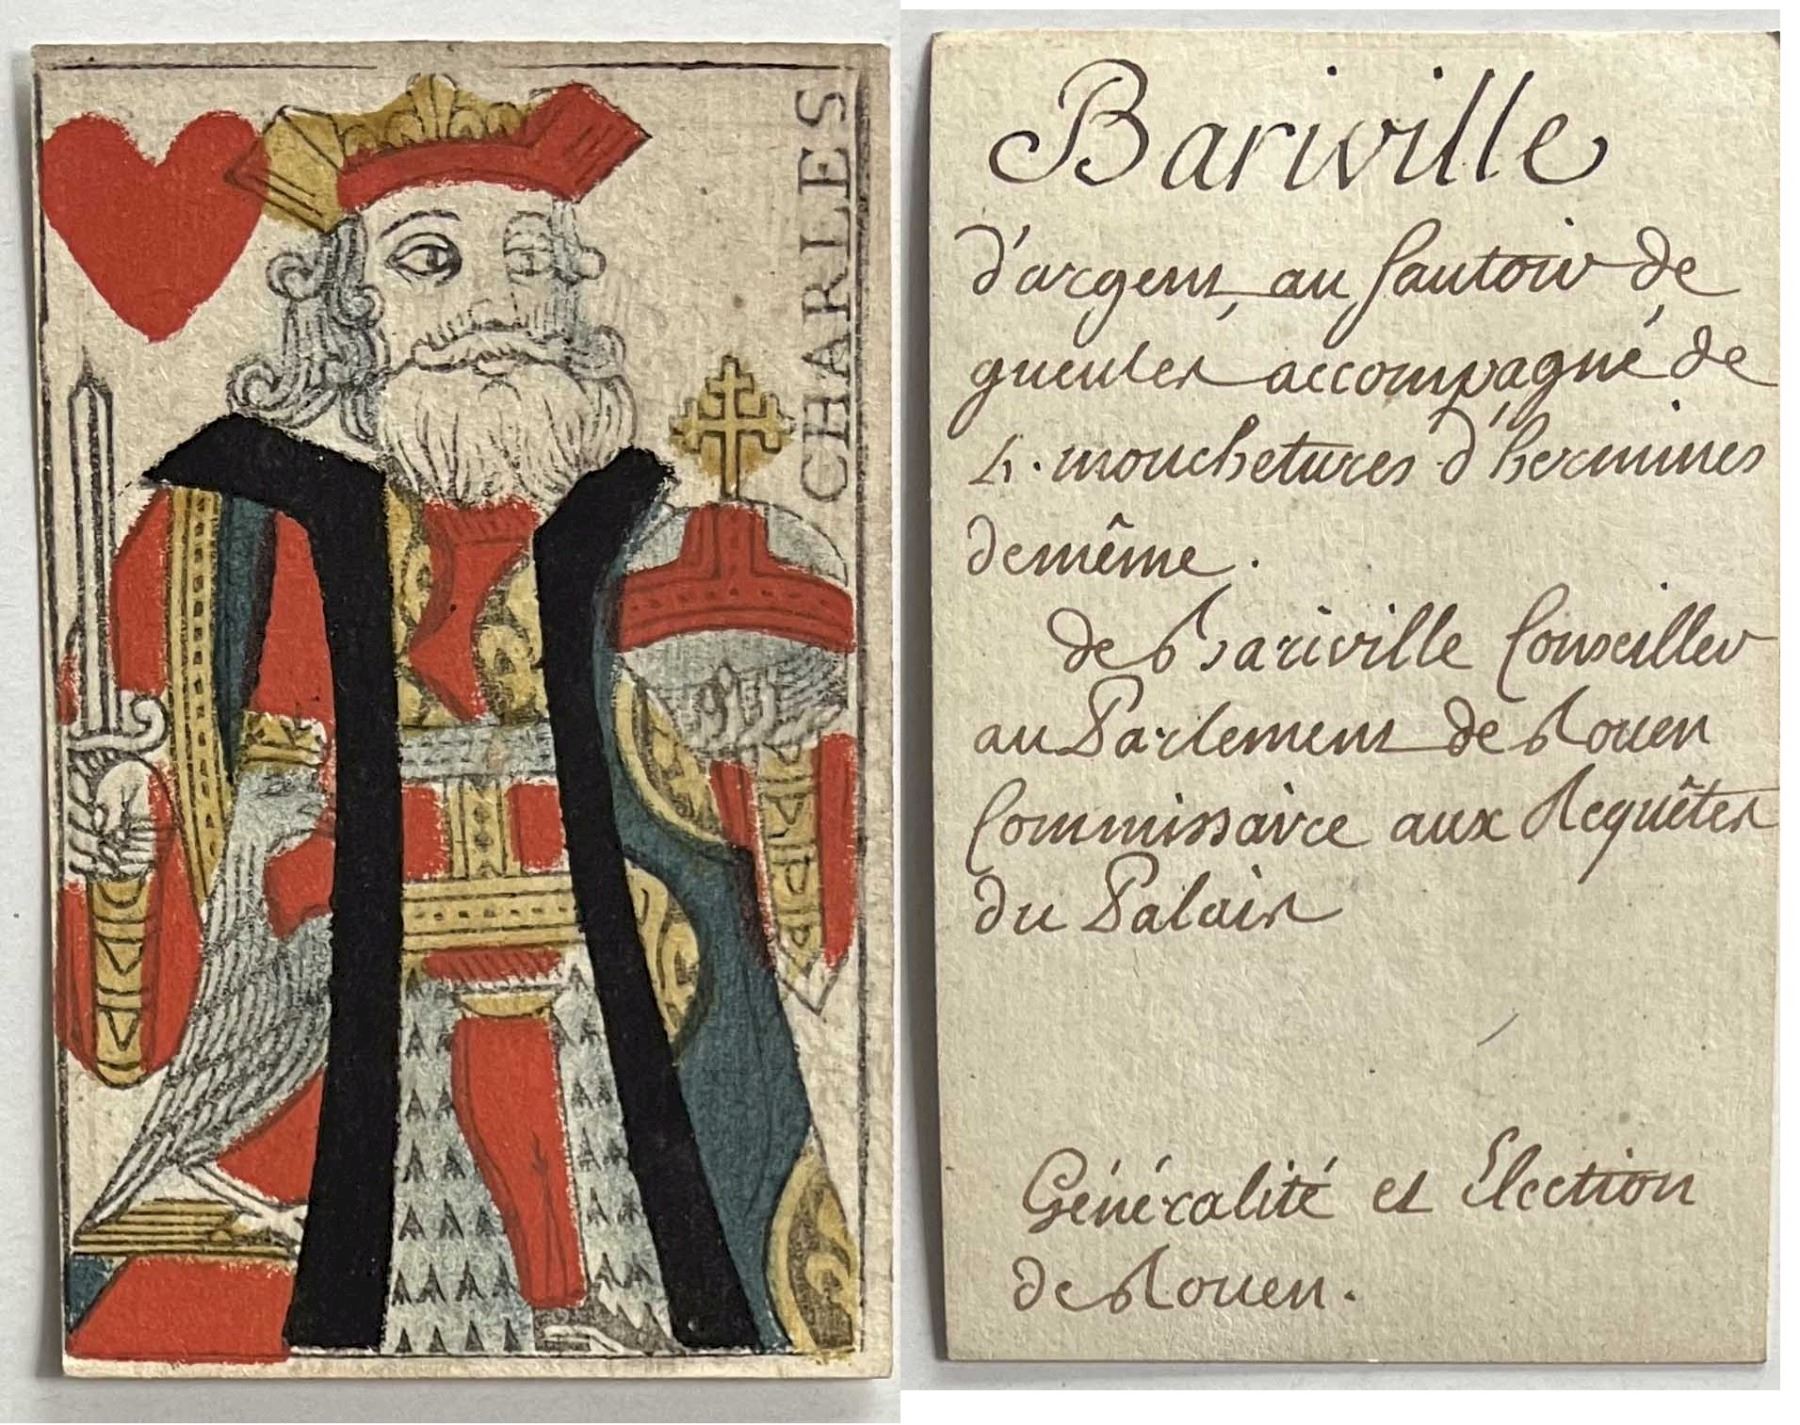 CHARLES
Bariville
d'argent, au sautoir de
gueules accompagné de
4. mouchetures d'hermines
de même.
de Bariville Conseiller
au Parlement de Rouen
Commissaire aux Requêtes
du Palais
Généralité et Election
de Rouen.